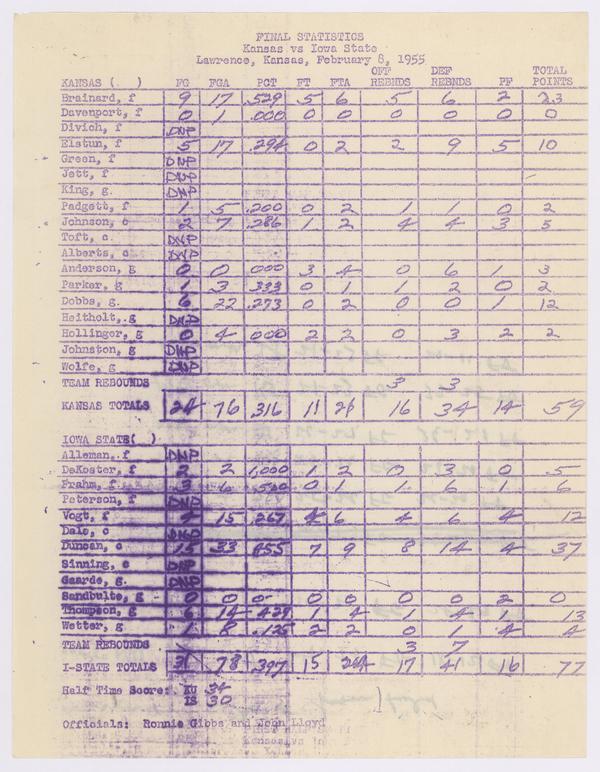 FINAL STATISTICS
Kansas vs Iowa State
Lawrence, Kansas, February 8, 1955
OFF DEF TOTAL
KANSAS ( ) FG FGA PCT FT FTA REBNDS REBNDS PF POINTS
Brainard, f 9 17 .529 5 6 5 6 2 23
Davenport, f 0 1 .000 0 0 0 0 0 0
Divich, f DNP
Elstun, f 5 17 .294 0 2 2 9 5 10
Green, f DNP
Jett, f DNP
King, g. DNP
Padgett, f 1 5 .200 0 2 1 1 0 2
Johnson, c 2 7 .286 1 2 4 4 3 5
Toft, c. DNP
Alberts, c DNP
Anderson, g 0 0 000 3 4 0 6 1 3
Parker, g 1 3 .333 0 1 1 2 0 2
Dobbs, g. 6 22 .273 0 2 0 0 1 12
Heitholt, g DNP
Hollinger, g 0 4 000 2 2 0 3 2 2
Johnston, g DNP
Wolfe, g. DNP
TEAM REBOUNDS 3 3
KANSAS TOTALS 24 76 .316 11 21 16 34 14 59
IOWA STATE( )
Alleman, f DNP
DeKoster, f 2 2 1,000 1 2 0 3 0 5
Frahm, f 3 6 .500 0 1 1 6 1 6
Peterson, f DNP
Vogt, f 4 15 .267 4 6 4 6 4 12
Dale, c DNP
Duncan, c 15 33 .455 7 9 8 14 4 37
Sinning, c DNP
Gaarde, g. DNP
Sandbulte, g 0 0 0 0 0 0 0 2 0
Thompson, g 6 14 .429 1 4 1 4 1 13
Wetter, g 1 8 .125 2 2 0 1 4 4
TEAM REBOUNDS 3 7
I-STATE TOTALS 31 78 .397 15 24 17 41 16 77
Half Time Score: KU 34
IS 30
Officials: Ronnie Gibbs and John Lloyd